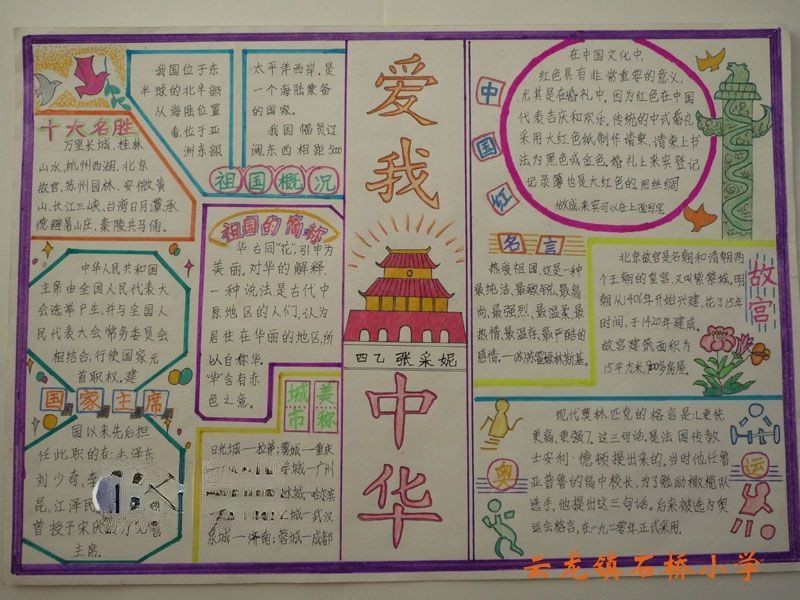 爱我中华
四乙 张采妮
十大名胜
万里长城、桂林
山水、杭州西湖、北京
故宫、苏州园林、安徽黄
山、长江三峡、台湾日月潭、承
德避暑山庄、秦陵兵马俑。
我国位于东
半球的北半部
从海陆位置
看位于亚
洲东部
太平洋西岸,是
一个海陆兼备
的国家。
我国幅员辽
阔东西相距5000
祖国概况
中华人民共和国
主席由全国人民代表大
会选举产生,并与全国人
民代表大会常务委员会
相结合,行使国家元
首职权,建
国家主席
国以来先后担
任此职的有毛泽东
刘少奇、李
昆、江泽民
曾授予宋庆
主席.
祖国的简称
华右同"花",引申为
美丽,对华的解释
一种说法是古代中
原地区的人们,认为
居住在华丽的地区,所
以自称华.
"华"含有赤
色之意.
城市美称
日光城—拉萨;雾城—重庆
羊城—广州
冰城—哈尔滨
江城—武汉
泉城—济南;蓉城—成都
中国红
在中国文化中,
红色具有非常重要的意义,
尤其是在婚礼中.因为红色在中国
代表吉庆和欢乐,传统的中式婚礼
采用大红色纸制作请柬,请柬上书
法为黑色或金色,婚礼上来宾登记
记录簿也是大红色的用丝绸
做成,来宾可以在上面写字.
名言
热爱祖国,这是一种
最纯洁、最敏锐、最高
尚、最强烈、最温柔、最
热情、最温存、最严酷的
感情.
故宫
北京故宫是明朝和清朝两
个王朝的皇宫,又叫紫禁城,明
朝从1406年开始兴建,花了15年
时间,于1420年建成.
故宫建筑面积为
15平方米,
奥运
现代奥林匹克的格言是:"更快、
更高、更强",这三句话,是法国传教
士安利·德顿提出来的,当时他任鲁
亚普鲁的揭中校长,为了勉励橄榄队
选手,他提出这三句话.后来被选为奥
运会格言,在一九二零年正式采用.
云龙镇石桥小学